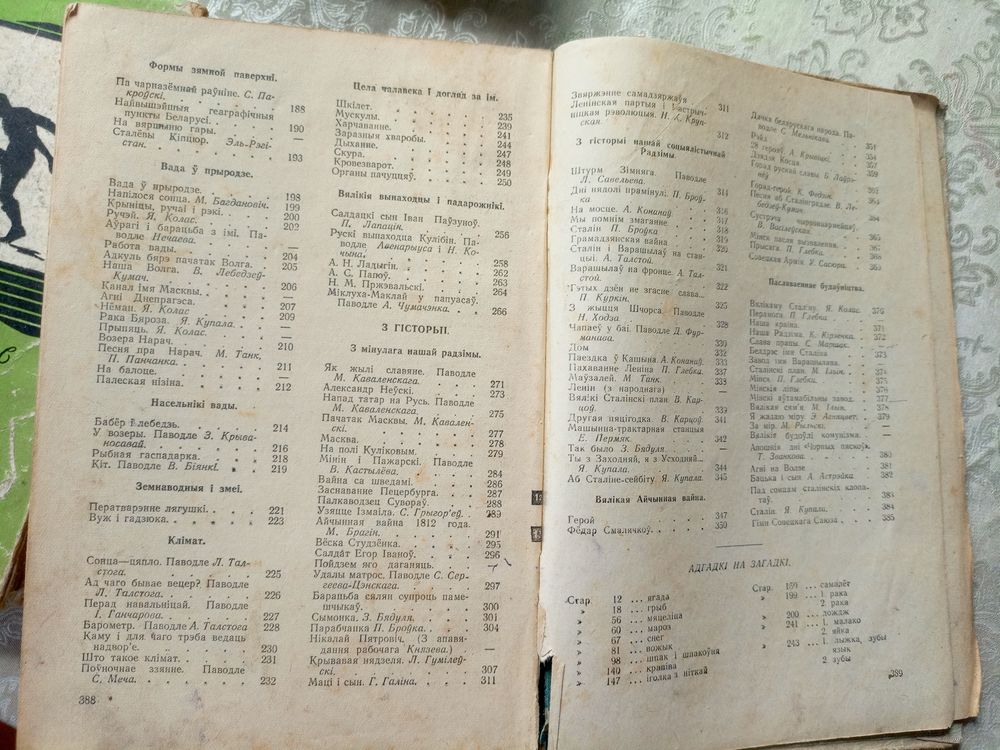 Формы зямной паверхні.
Па чарназёмнай раўніне. С. Па-
кроўскі. 188
Найвышэйшыя геаграфічныя
пункты Беларусі. 190
На вяршыню гары. —
Сталёвы Кіпцюр. Эль-Рэгі-
стан. 193
Вада ў прыродзе.
Вада ў прыродзе. 198
Напілося сонца. М. Багдановіч. 199
Крыніцы, ручаі і рэкі. 200
Ручэй. Я. Колас. —
Аўрагі і барацьба з імі. Па-
водле Нечаева. 202
Работа вады. —
Адкуль бярэ пачатак Волга. 204
Наша Волга. В. Лебедзеў- 205
Кумач.
Канал імя Масквы. 206
Агні Днепрагэса. —
Нёман. Я. Колас 207
Рака Бяроза. Я. Купала. 209
Прыпяць. Я. Колас. —
Возера Нарач. —
Песня пра Нарач. М. Танк, 210
П. Панчанка.
На балоце. 211
Палеская нізіна. —
212
Насельнікі вады.
Бабёр і лебедзь. 214
У возеры. Паводле З. Крыва-
носавай. 216
Рыбная гаспадарка. 218
Кіт. Паводле В. Біянкі. 219
Земнаводныя і змеі.
Ператварэнне лягушкі. 221
Вуж і гадзюка. 223
Клімат.
Сонца—цяпло. Паводле Л. Тал-
стога. 225
Ад чаго бывае вецер? Паводле
Л. Талстога. 226
Перад навальніцай. Паводле
І. Ганчарова. 227
Барометр. Паводле А. Талстога 228
Каму і для чаго трэба ведаць
надвор'е. 230
Што такое клімат. 231
Поўночнае ззянне. Паводле
С. Меча. 232
388
Цела чалавека і догляд за ім.
Шкілет. 235
Мускулы. 239
Харчаванне. 241
Заразныя хваробы. 244
Дыханне. 247
Скура. 248
Кровезварот. 249
Органы пачуццяў. 250
Вялікія вынаходцы і падарожнікі.
Салдацкі сын Іван Паўзуноў.
П. Лапацін. 256
Рускі вынаходца Кулібін. Па-
водле Авенарыуса і Н. Ко-
чына. 258
А. Н. Ладыгін. 262
А. С. Папоў. 263
Н. М. Пржэвальскі. 264
Міклуха-Маклай у папуасаў.
Паводле А. Чумачэнка. 266
З ГІСТОРЫІ.
З мінулага нашай радзімы.
Як жылі славяне. Паводле
М. Каваленскага. 271
Александр Неўскі. 273
Напад татар на Русь. Паводле
М. Каваленскага. 275
Пачатак Масквы. М. Кавален-
скі. 277
Масква. 278
На полі Куліковым. 279
Мінін і Пажарскі. Паводле
В. Кастылёва. 284
Вайна са шведамі. 286
Заснаванне Пецербурга. 287
Палкаводзец Сувораў. 288
Узяцце Ізмаіла. С. Грыгор'еў. 289
Айчынная вайна 1812 года.
М. Брагін. 291
Вёска Студзёнка. 295
Салдат Егор Іваноў. 296
Пойдзем яго даганяць. —
Удалы матрос. Паводле С. Сер-
геева-Цэнскага. 297
Барацьба сялян супроць паме-
шчыкаў. 300
Сымонка. З. Бядуля. 301
Парабчанка П. Броўка. 304
Нікалай Пятровіч. (З апавя-
дання рабочага Князева.) —
Крывавая нядзеля. Л. Гумілеў-
скі. 307
Маці і сын. Г. Галіна. 311
Звяржэнне самадзяржаўя 311
Ленінская партыя і Кастрыч-
ніцкая рэволюцыя. Н. К. Круп-
ская. 312
З гісторыі нашай соцыялістычнай
Радзімы.
Штурм Зімняга. Паводле
Л. Савельева. 313
Дні нядолі прамінулі. П. Броў-
ка 314
На мосце. А. Конанаў 316
Мы помнім змаганне 317
Сталін П. Броўка 318
Грамадзянская вайна 319
Сталін і Варашылаў на стан-
цыі. А. Талстой.
Варашылаў на фронце А. Тал-
стой.
Гэтых дзён не згасне слава... 322
П. Куркін.
З жыцця Шчорса. Паводле
Н. Ходза 328
Чапаеў у баі. Паводле Д. Фур-
манава. 330
Дом 332
Паездка ў Кашына А. Конанаў. 333
Пахаванне Леніна П. Глебка. 337
Маўзалей. М. Танк. 333
Ленін (з народнага) —
Вялікі Сталінскі план В. Кар-
цоў. 339
Другая пяцігодка. В. Карцоў. 341
Машынна-трактарная станцыя
Е. Пермяк. 342
Так было З. Бядуля. —
Ты з Заходняй, я з Усходняй...
Я. Купала. 344
Аб Сталіне-сейбіту Я. Купала. 345
Вялікая Айчынная вайна.
Герой 347
Фёдар Смалячкоў. 350
Дачка беларускага народа. Па-
водле С. Мельнікава. 351
Рэйд 354
28 герояў А. Крывіцкі. 357
Дзядзя Косця. 359
Горад рускай славы Б. Лаўрэ-
нёў
Горад-герой. К. Федзін. 363
Песня аб Сталінградзе. В. Ле-
бедзеў-Кумач. 364
Сустрэча чырвонаармейцаў.
Мінск пасля вызвалення. 365
Прысяга. П. Глебка. 366
Совецкая Армія У. Сасюра. 369
Пасляваеннае будаўніцтва.
Вялікаму Сталіну. Я. Колас. 370
Перамога П. Глебка. —
Наша краіна. 371
Наша Радзіма. К. Кірэенка. 372
Слава працы. С. Маршак. —
Белдрэс імя Сталіна 373
Завод імя Варашылава. —
Сталінскі план. М. Ільін. 374
Мінск. П. Глебка. 375
Мінскія ліпы. 376
Мінскі аўтамабільны завод. 377
Вялікая сям'я М. Ільін. 378
Я жадаю міру. Э. Агняцвет. 379
За мір. М. Рыльскі. —
Вялікія будоўлі комунізма. —
Апошнія дні «Чорных пяскоў».
Т. Званкова. 380
Агні на Волзе 381
Бацька і сын А. Астрэйка 382
Пад сонцам сталінскіх клопа-
таў. 384
Сталін Я. Купала. —
Гімн Совецкага Саюза. 385
АДГАДКІ НА ЗАГАДКІ.
Стар. 12 ... ягада
» 18 ... грыб
» 56 ... мяцеліца
» 60 ... мароз
» 67 ... снег
» 81 ... вожык
» 98 ... шпак і шпакоўня
» 140 ... крапіва
» 147 ... іголка з ніткай
Стар. 159 ... самалёт
» 199 ... 1. рака
2. раха
» 200 ... дождж
» 241 ... 1. малако
2. яйка
» 243 ... 1. лыжка, зубы
язык
2. зубы
389